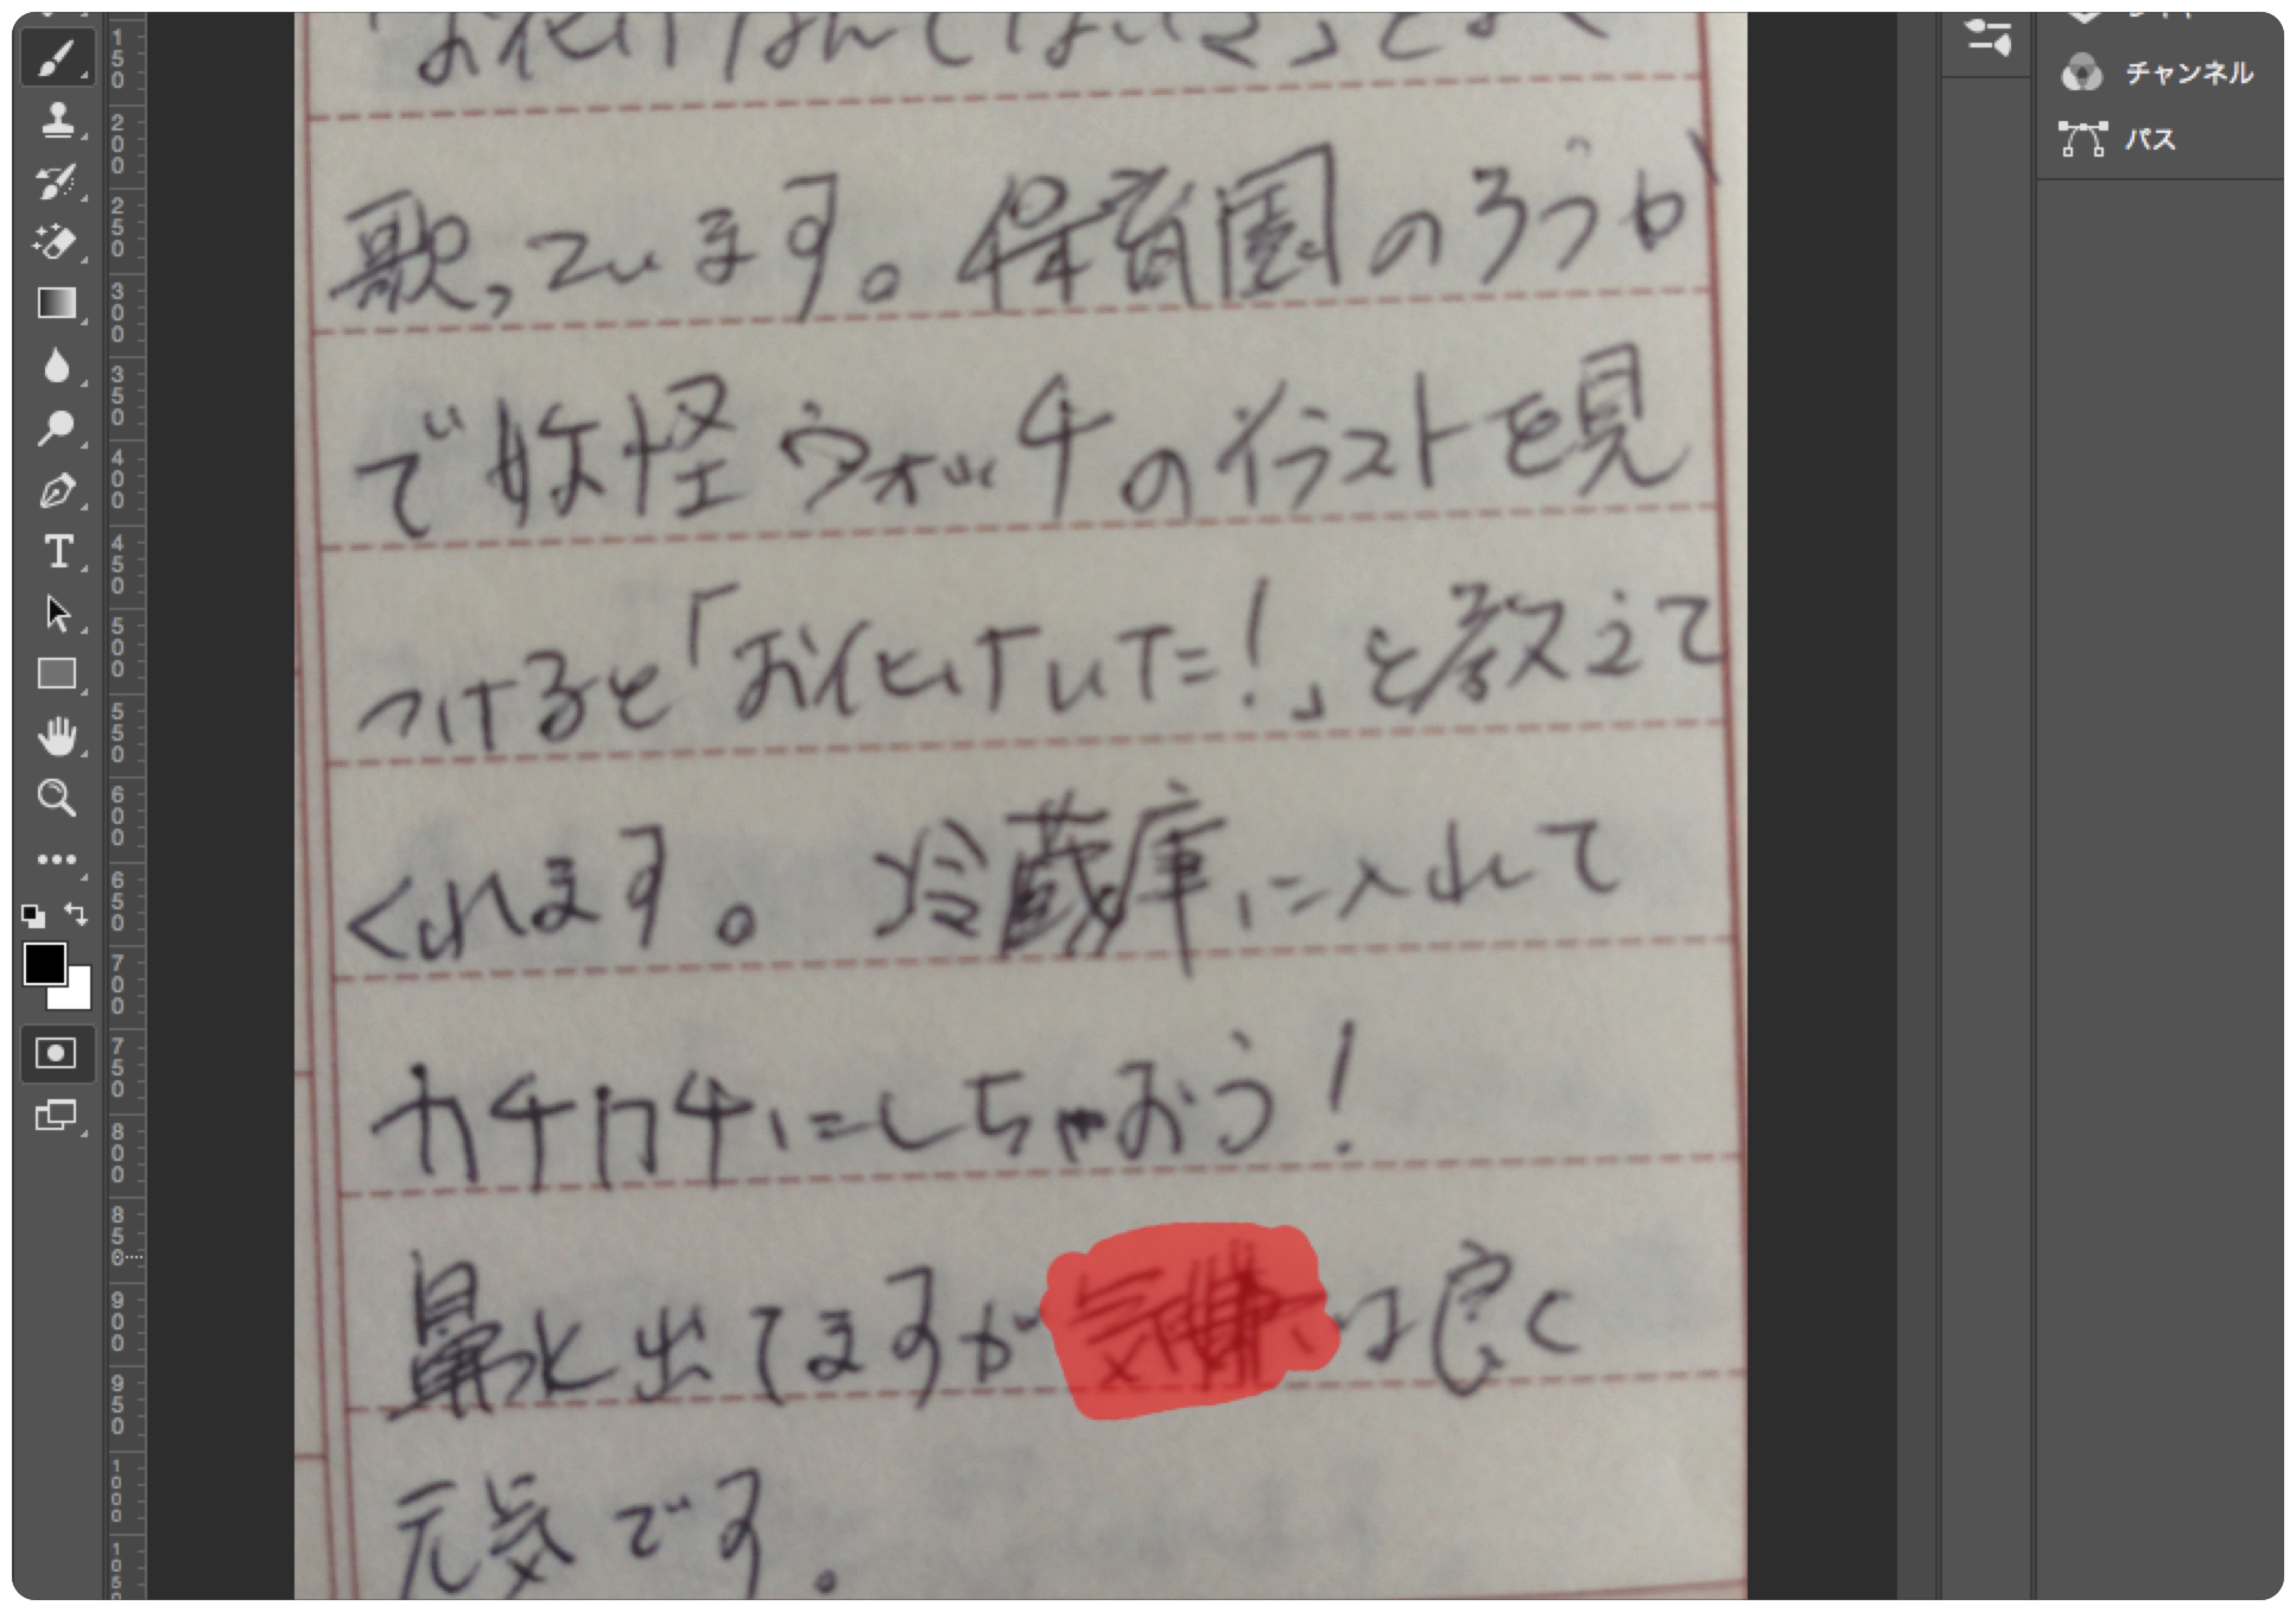 「お化けなんてないさ」とよく
チャンネル
パス
歌っています。保育園のろうか
で妖怪ウォッチのイラストを見
つけると「お化けいた!」と教えて
くれます。冷蔵庫に入れて
カチカチにしちゃおう!
鼻水出てますが は良く
元気です。
150
200
250
300
350
400
450
500
550
600
650
700
750
800
850
900
950
1000